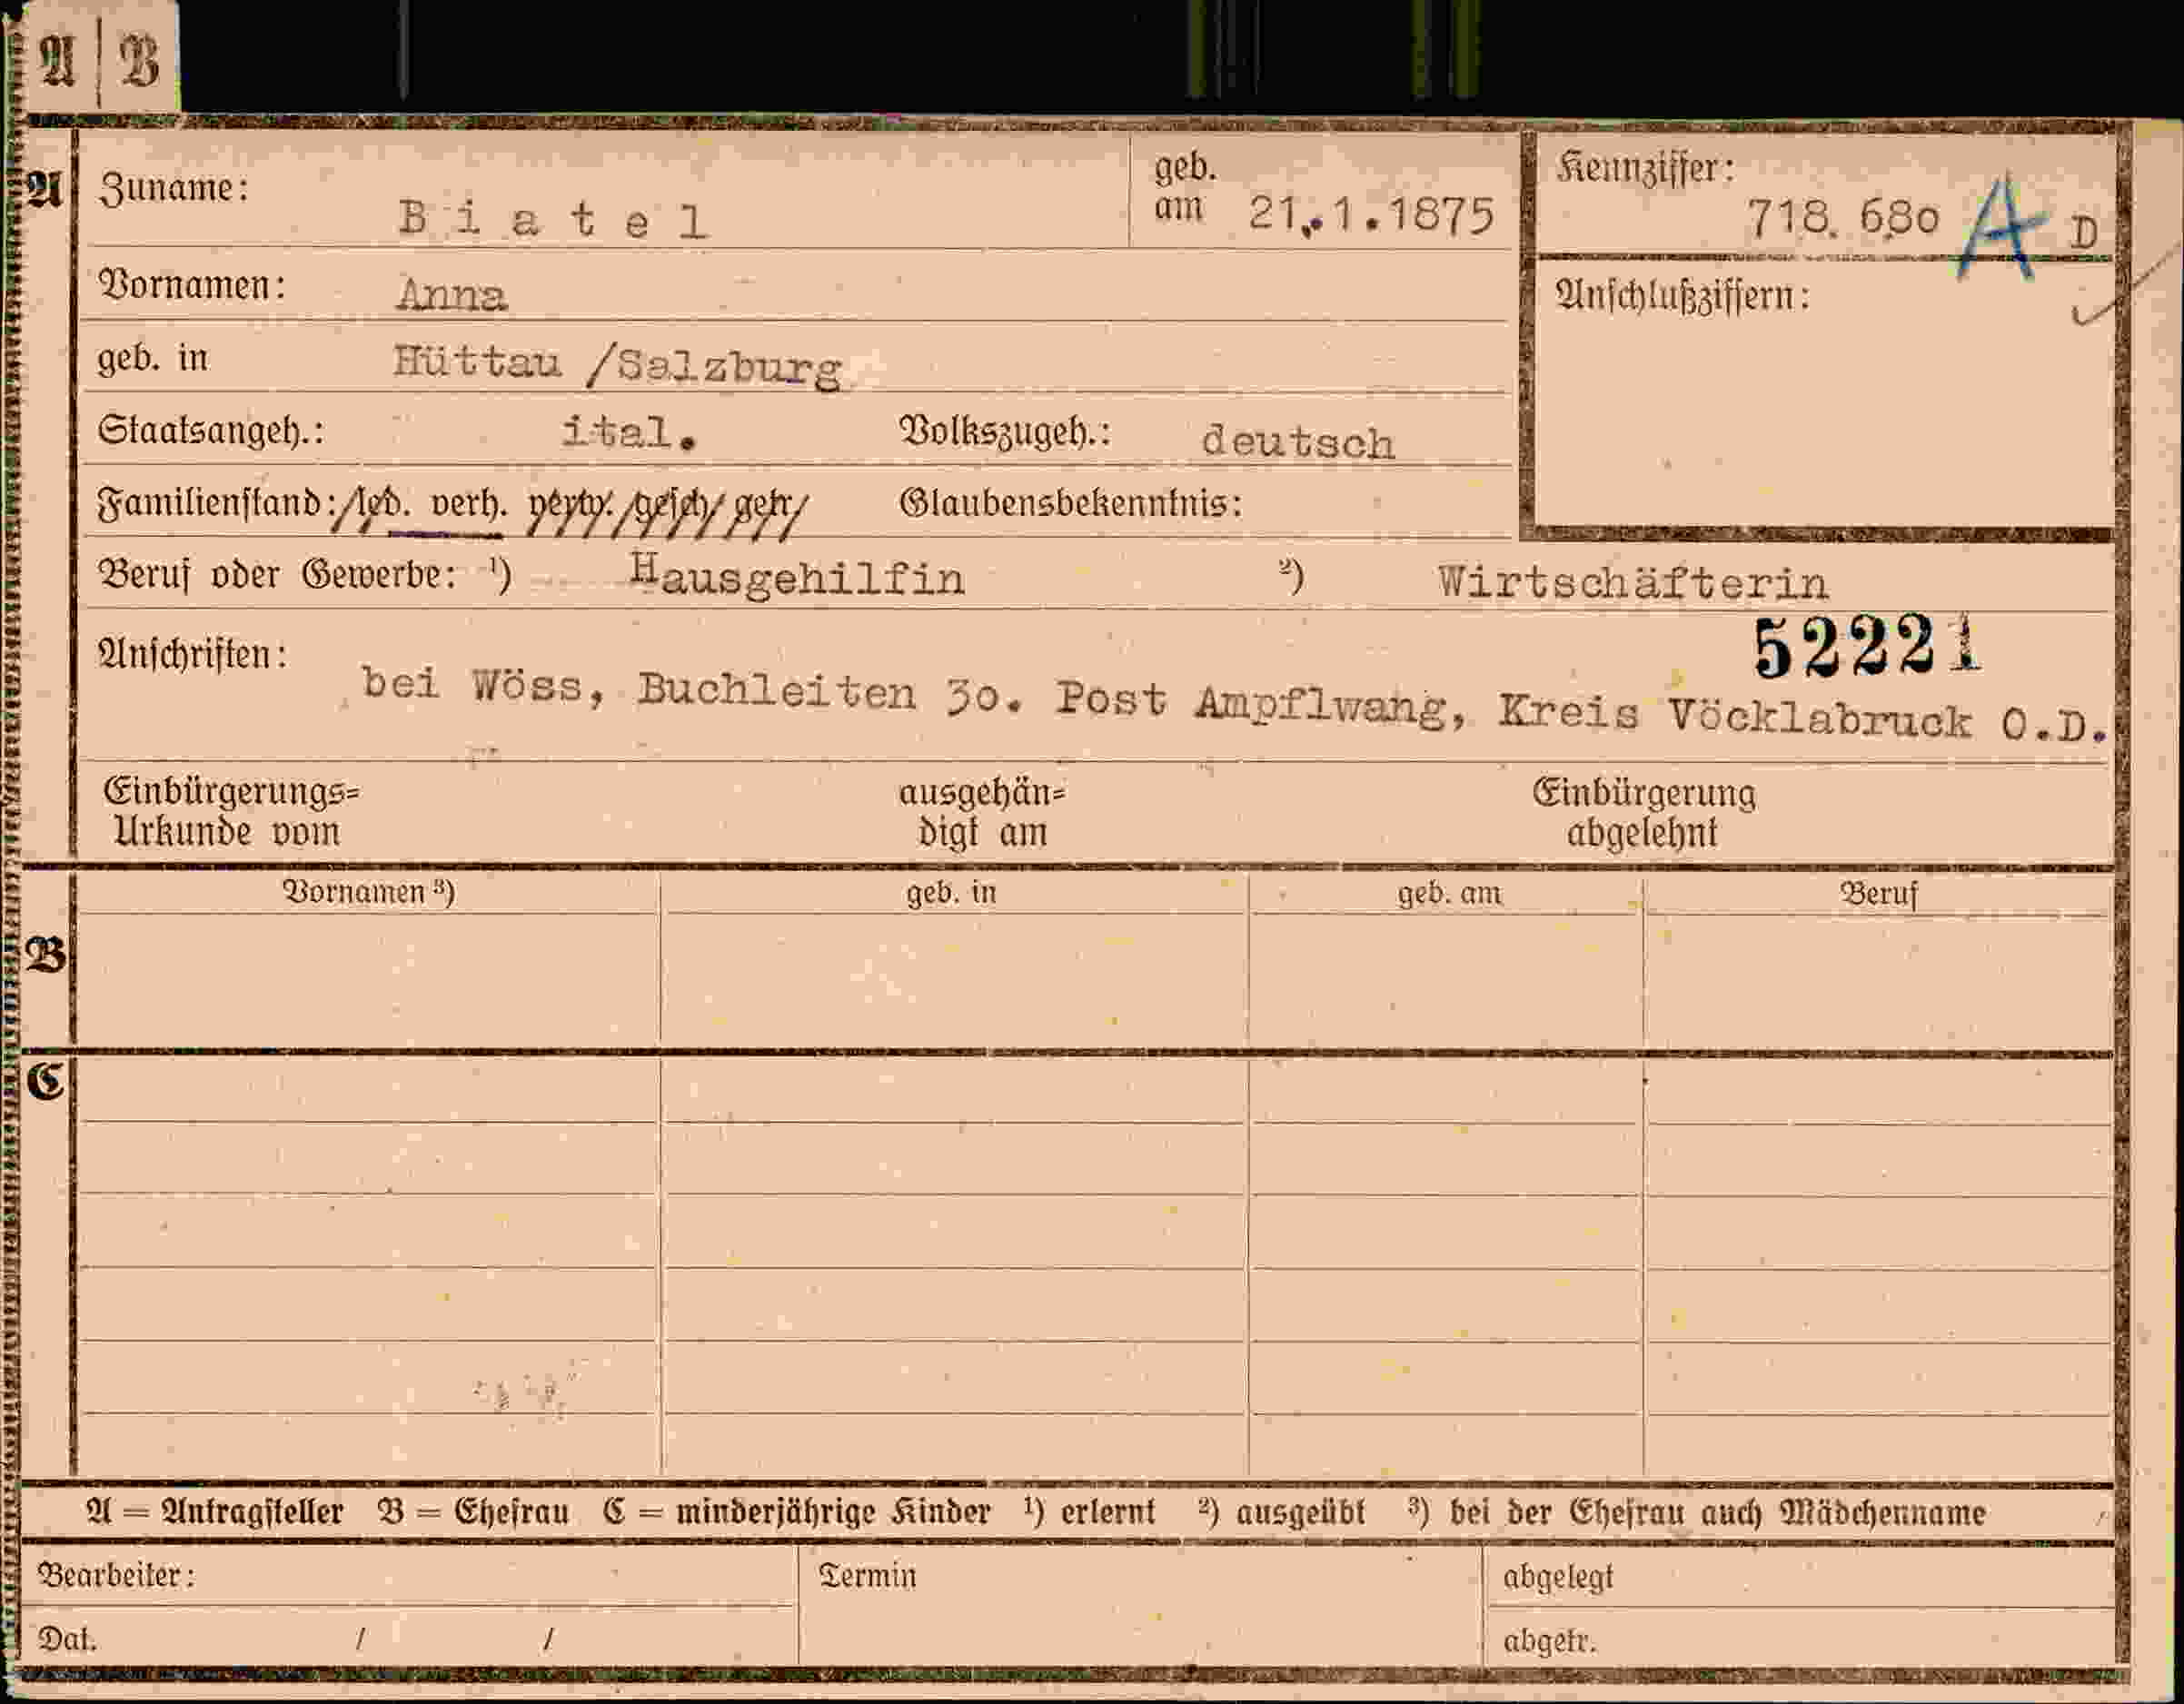 A | B
A Zuname: Biatel geb. am 21.1.1875 Kennziffer: 718.680 A D
Vornamen: Anna Anschlußziffern:
geb. in Hüttau /Salzburg
Staatsangeh.: ital. Volkszugeh.: deutsch
Familienstand: led. verh. verw. gesch. getr. Glaubensbekenntnis:
Beruf oder Gewerbe: ¹) Hausgehilfin ²) Wirtschäfterin
52221
Anschriften: bei Wöss, Buchleiten 30. Post Ampflwang, Kreis Vöcklabruck O.D.
Einbürgerungs= ausgehän= Einbürgerung
Urkunde vom digt am abgelehnt
Vornamen ³) geb. in geb. am Beruf
B
C
A = Antragsteller B = Ehefrau C = minderjährige Kinder ¹) erlernt ²) ausgeübt ³) bei der Ehefrau auch Mädchenname
Bearbeiter: Termin abgelegt
Dat. / / abgetr.